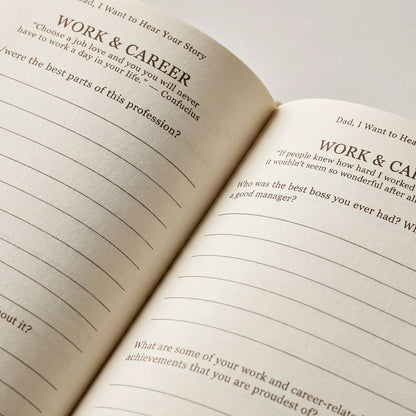 Dad, I Want to Hear Your Story
WORK & CAREER
"Choose a job love and you you will never
have to work a day in your life." — Confucius
/were the best parts of this profession?
out it?
Dad, I Want to Hea
WORK & CA
"If people knew how hard I worked
it woubln't seem so wonderful after all
Who was the best boss you ever had? W
a good manager?
What are some of your work and career-rela
achievements that you are proudest of a